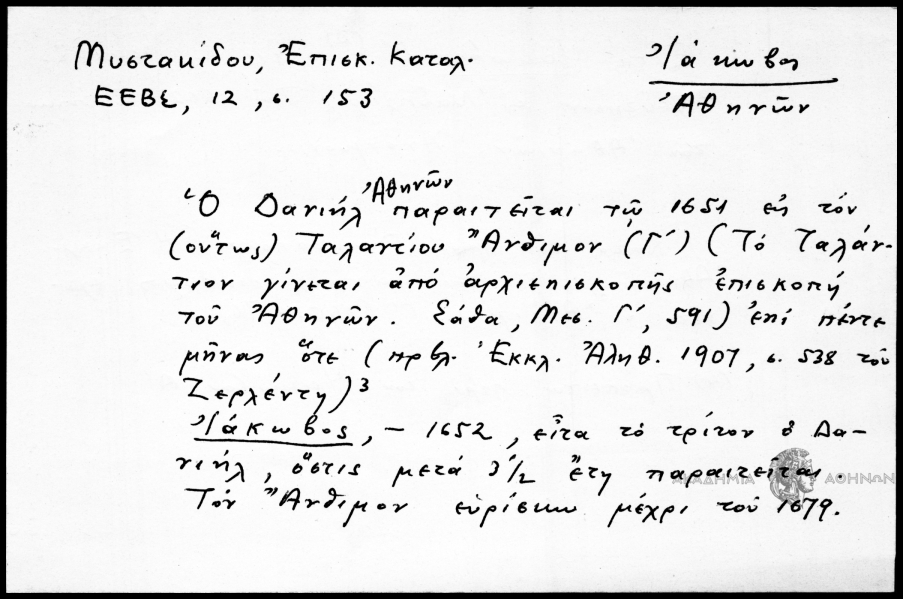 Μυστακίδου, Ἐπισκ. Καταλ.
ΕΕΒΣ, 12, σ. 153
Ἰάκωβος
Ἀθηνῶν
Ἀθηνῶν
Ὁ Δανιήλ παραιτεῖται τῷ 1651 εἰς τόν
(οὕτως) Ταλαντίου Ἄνθιμον (Γ΄) (Τό Ταλάν-
τιον γίνεται ἀπό ἀρχιεπισκοπῆς ἐπισκοπή
τοῦ Ἀθηνῶν. Σάθα, Μεσ. Γ΄, 591) ἐπί πέντε
μῆνας ὅτε (πρβλ. Ἐκκλ. Ἀληθ. 1907, σ. 538 τοῦ
Ζερλέντη)3
Ἰάκωβος, – 1652, εἶτα τό τρίτον ὁ Δα-
νιήλ, ὅστις μετά 3 1/2 ἔτη παραιτεῖται.
Τόν Ἄνθιμον εὑρίσκω μέχρι τοῦ 1679.
ΑΚΑΔΗΜΙΑ ΑΘΗΝΩΝ